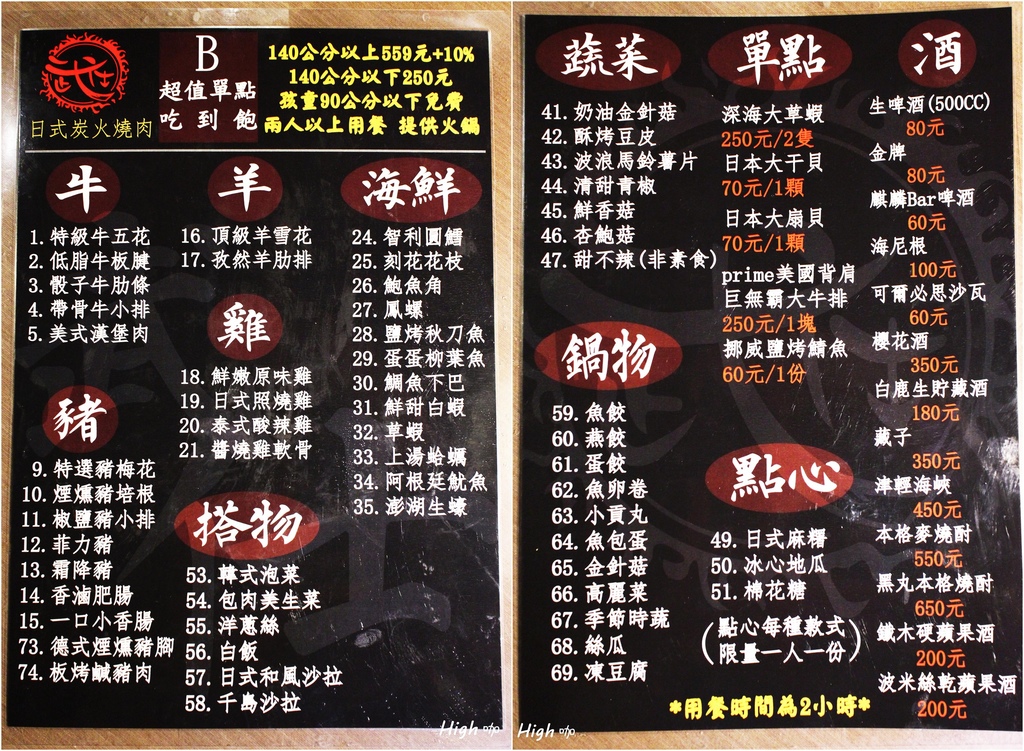 日式炭火燒肉
B
超值單點
吃到飽
140公分以上559元+10%
140公分以下250元
孩童90公分以下免費
兩人以上用餐 提供火鍋
牛
1. 特級牛五花
2. 低脂牛板腱
3. 骰子牛肋條
4. 帶骨牛小排
5. 美式漢堡肉
豬
9. 特選豬梅花
10. 煙燻豬培根
11. 椒鹽豬小排
12. 菲力豬
13. 霜降豬
14. 香滷肥腸
15. 一口小香腸
73. 德式煙燻豬腳
74. 板烤鹹豬肉
羊
16. 頂級羊雪花
17. 孜然羊肋排
雞
18. 鮮嫩原味雞
19. 日式照燒雞
20. 泰式酸辣雞
21. 醬燒雞軟骨
搭物
53. 韓式泡菜
54. 包肉美生菜
55. 洋蔥絲
56. 白飯
57. 日式和風沙拉
58. 千島沙拉
海鮮
24. 智利圓鱈
25. 刻花花枝
26. 鮑魚角
27. 鳳螺
28. 鹽烤秋刀魚
29. 蛋蛋柳葉魚
30. 鯛魚下巴
31. 鮮甜白蝦
32. 草蝦
33. 上湯蛤蠣
34. 阿根廷魷魚
35. 澎湖生蠔
High 咖
蔬菜
41. 奶油金針菇
42. 酥烤豆皮
43. 波浪馬鈴薯片
44. 清甜青椒
45. 鮮香菇
46. 杏鮑菇
47. 甜不辣(非素食)
鍋物
59. 魚餃
60. 燕餃
61. 蛋餃
62. 魚卵卷
63. 小貢丸
64. 魚包蛋
65. 金針菇
66. 高麗菜
67. 季節時蔬
68. 絲瓜
69. 凍豆腐
單點
深海大草蝦
250元/2隻
日本大干貝
70元/1顆
日本大扇貝
70元/1顆
prime美國背肩
巨無霸大牛排
250元/1塊
挪威鹽烤鯖魚
60元/1份
點心
49. 日式麻糬
50. 冰心地瓜
51. 棉花糖
(點心每種款式
限量一人一份)
酒
生啤酒(500CC)
80元
金牌
80元
麒麟Bar啤酒
60元
海尼根
100元
可爾必思沙瓦
60元
櫻花酒
350元
白鹿生貯藏酒
180元
藏子
350元
津輕海峽
450元
本格麥燒酎
550元
黑丸本格燒酎
650元
鐵木硬蘋果酒
200元
波米絲乾蘋果酒
200元
*用餐時間為2小時*
High 咖